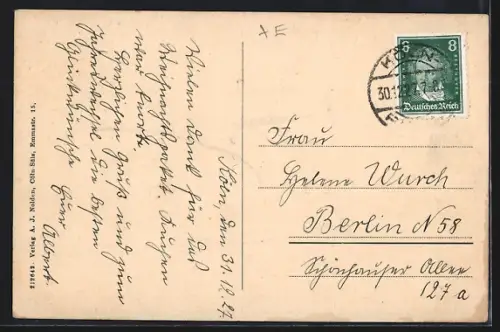 XE
8 8
Deutsches Reich
KÖLN
30.12.
Köln, den 31.12.27.
Vielen Dank für das
Weihnachtspaket.
war
Herzlichen Gruß und zum
Jahreswechsel die besten
Glückwünsche
Euer
Albert.
Frau
Helene Wurch
Berlin N 58
Schönhauser Allee
127 a
Verlag A. J. Nolden, Cöln-Sülz, Emmastr. 15.